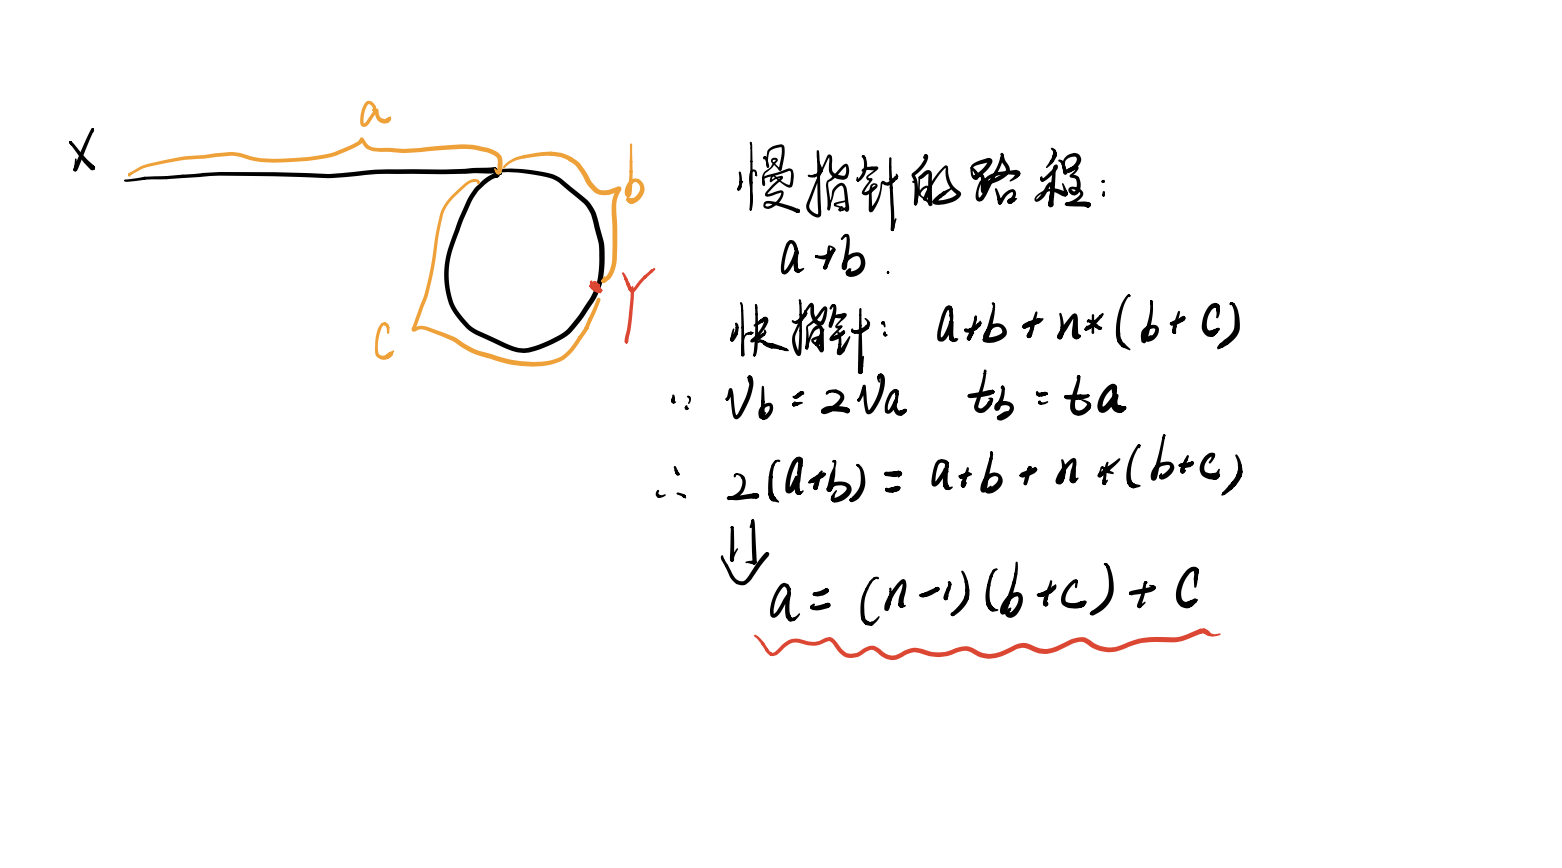 X
a
b
c
Y
慢指针的路程:
a+b.
快指针: a+b+n*(b+c)
∵ Vb=2Va tb=ta
∴ 2(a+b)=a+b+n*(b+c)
⇓
a=(n-1)(b+c)+c